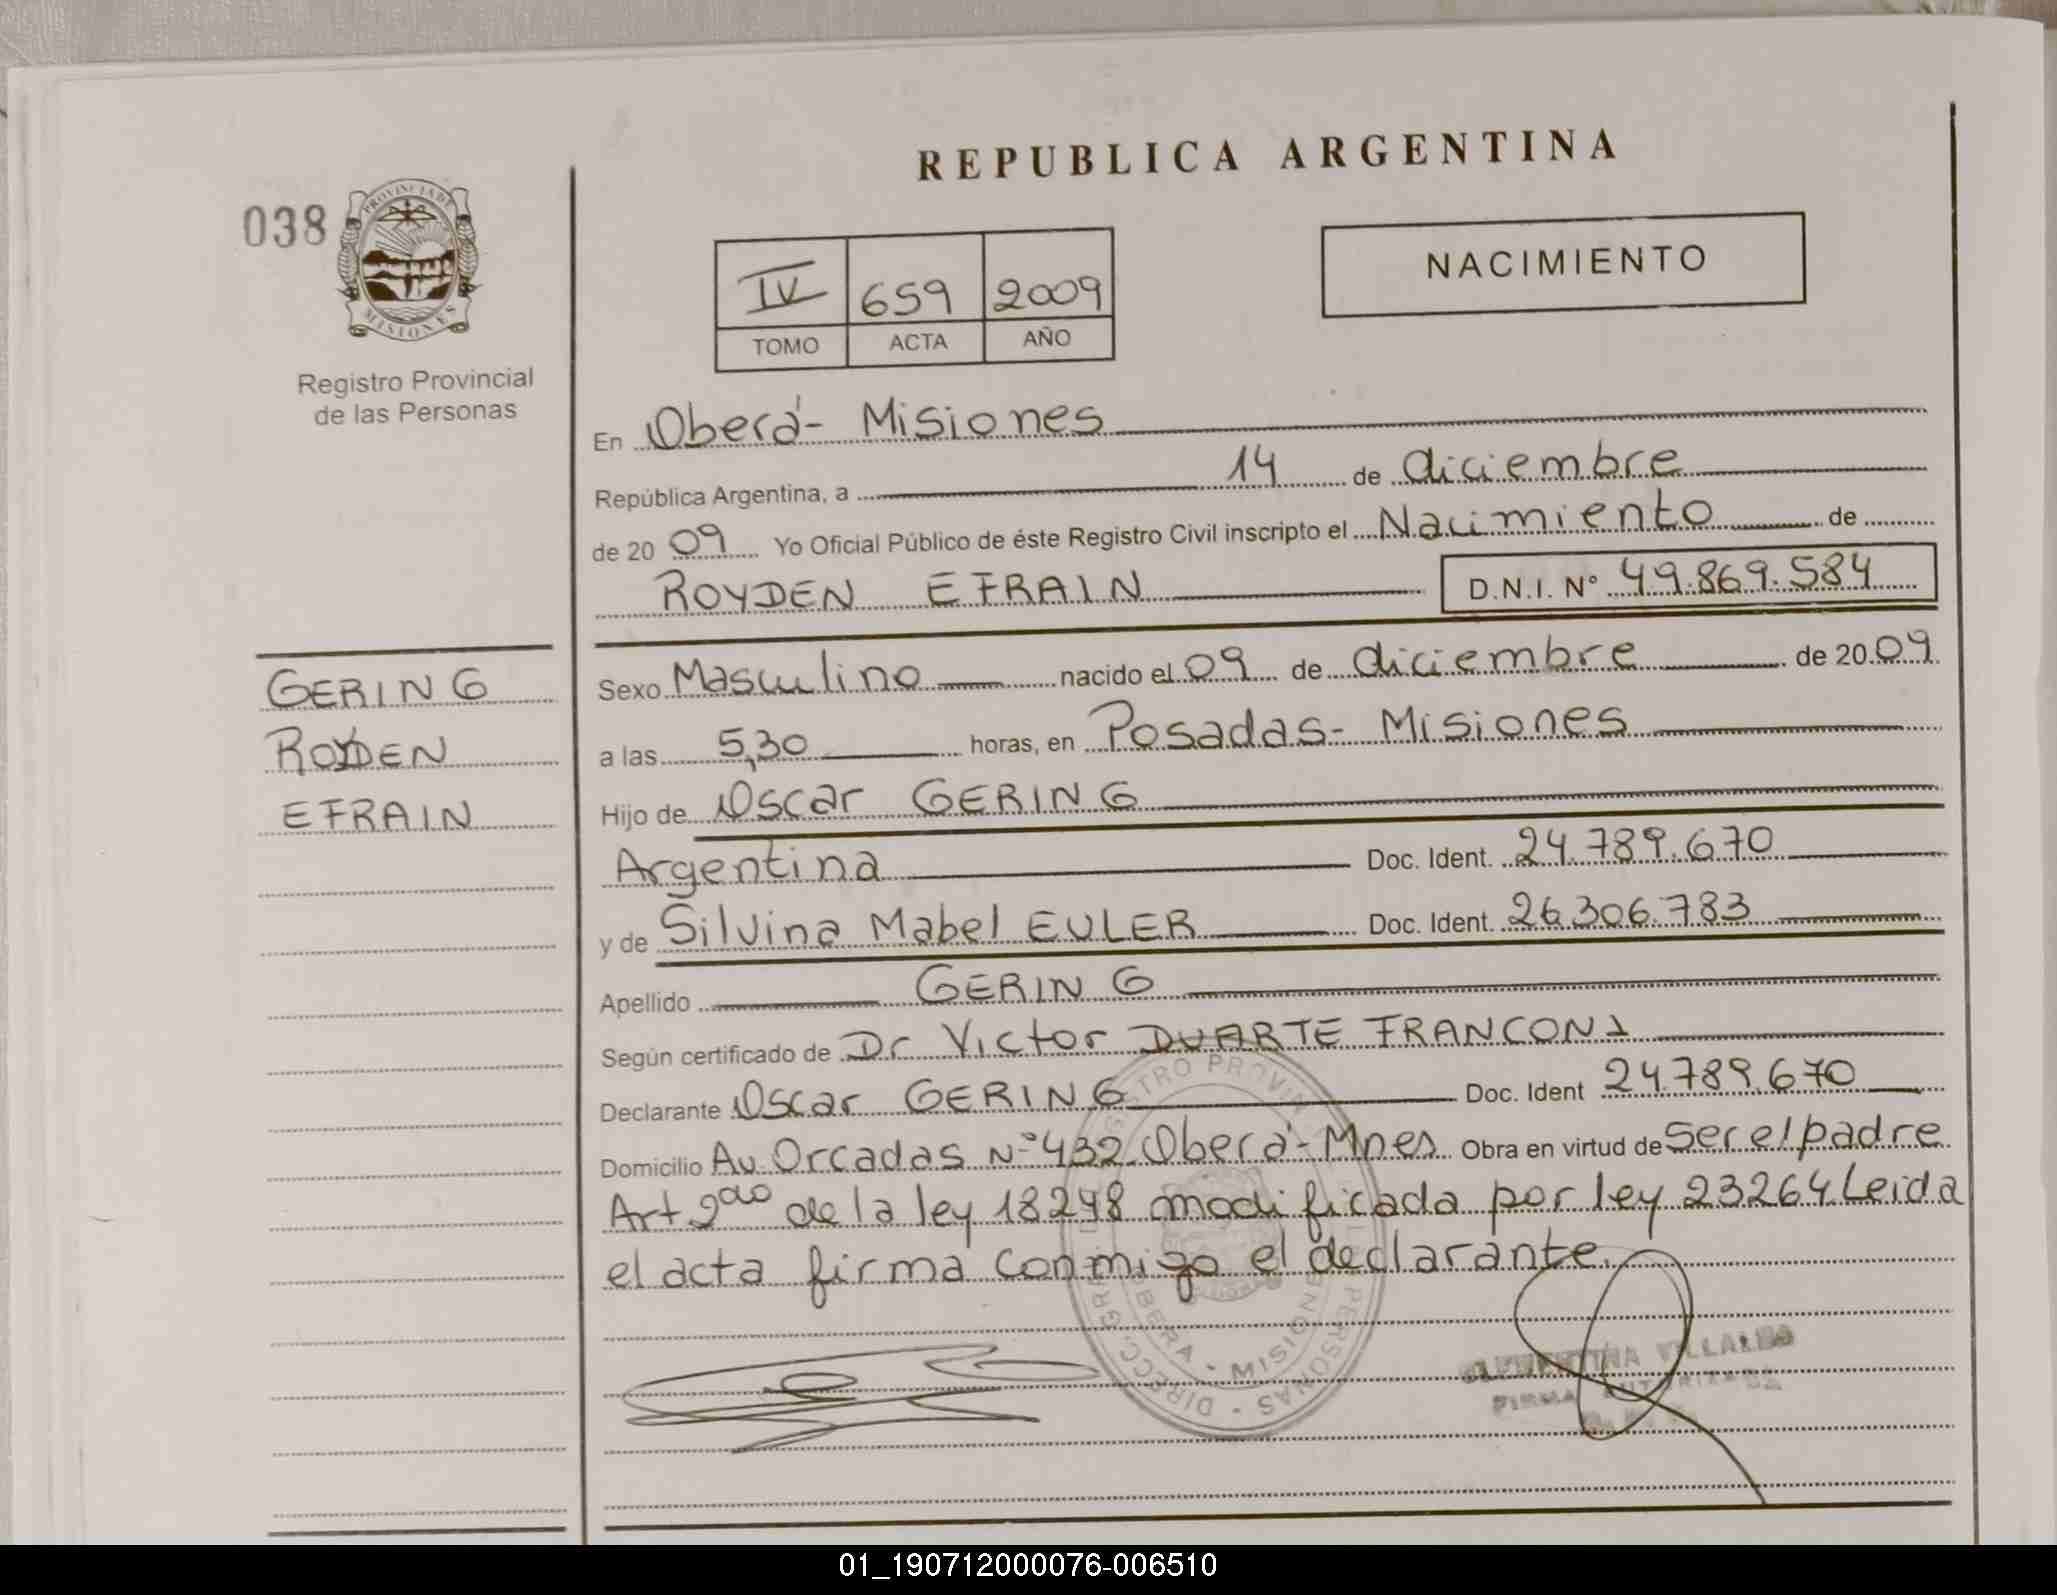 REPUBLICA ARGENTINA
038
PROVINCIA DE
MISIONES
Registro Provincial
de las Personas
IV 659 2009
TOMO ACTA AÑO
NACIMIENTO
En Oberá - Misiones
República Argentina, a 14 de diciembre
de 2009 Yo Oficial Público de éste Registro Civil inscripto el Nacimiento de
ROYDEN EFRAIN D.N.I. Nº 49.869.584
GERING
ROYDEN
EFRAIN
Sexo Masculino nacido el 09 de diciembre de 2009
a las 5,30 horas, en Posadas - Misiones
Hijo de Oscar GERING
Argentina Doc. Ident. 24.789.670
y de Silvina Mabel EULER Doc. Ident. 26.306.783
Apellido GERING
Según certificado de Dr Victor DUARTE FRANCONI
Declarante Oscar GERING Doc. Ident 24.789.670
Domicilio Av. Orcadas Nº 432 Oberá - Mnes Obra en virtud de ser el padre
Art 2do de la ley 18248 modificada por ley 23264 Leida
el acta firma conmigo el declarante.
OBERA - MISIONES
VILLALBA
FIRMA AUTORIZADA
01_190712000076-006510